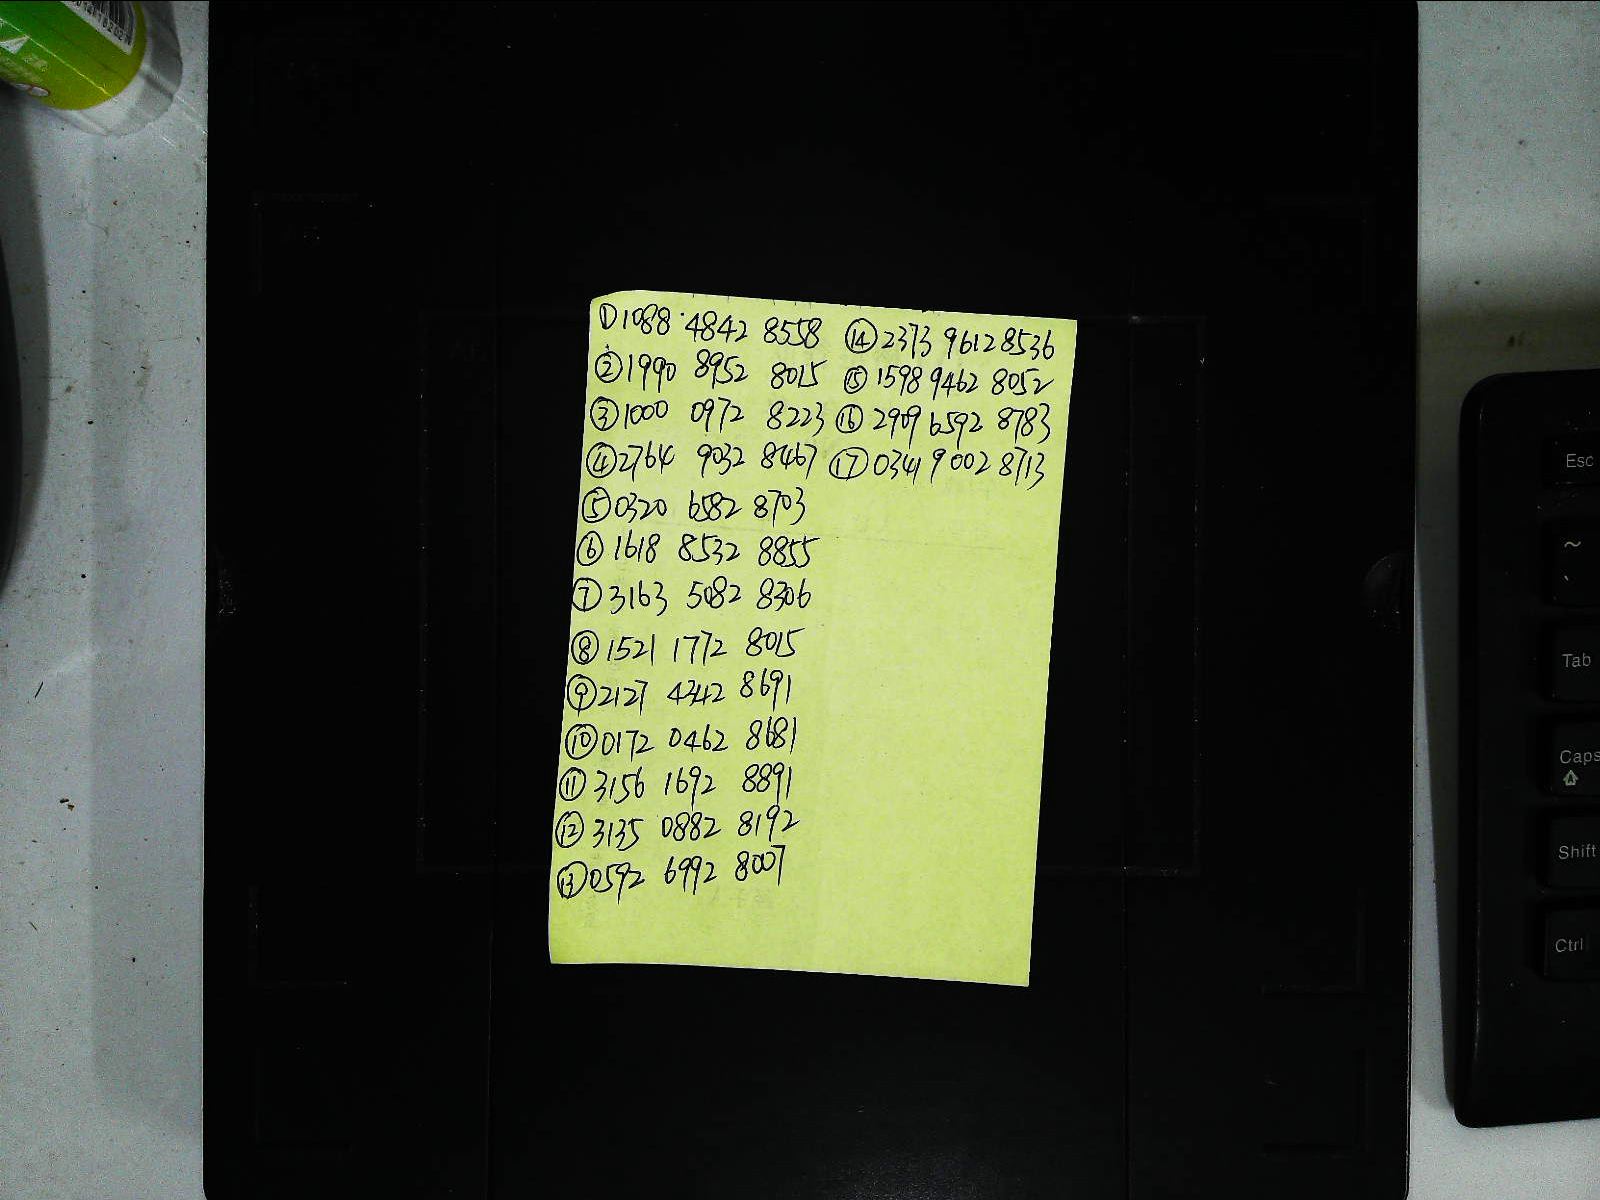 ① 1088 4842 8558
② 1990 8952 8015
③ 1000 0972 8223
④ 2764 9032 8467
⑤ 0320 6582 8703
⑥ 1618 8532 8855
⑦ 3163 5082 8306
⑧ 1521 1772 8015
⑨ 2127 4342 8691
⑩ 0172 0462 8681
⑪ 3156 1692 8891
⑫ 3135 0882 8192
⑬ 0592 6992 8007
⑭ 2373 9612 8536
⑮ 1598 9462 8052
⑯ 2909 6592 8783
⑰ 0341 9002 8713
Esc
~
Tab
Caps
Shift
Ctrl